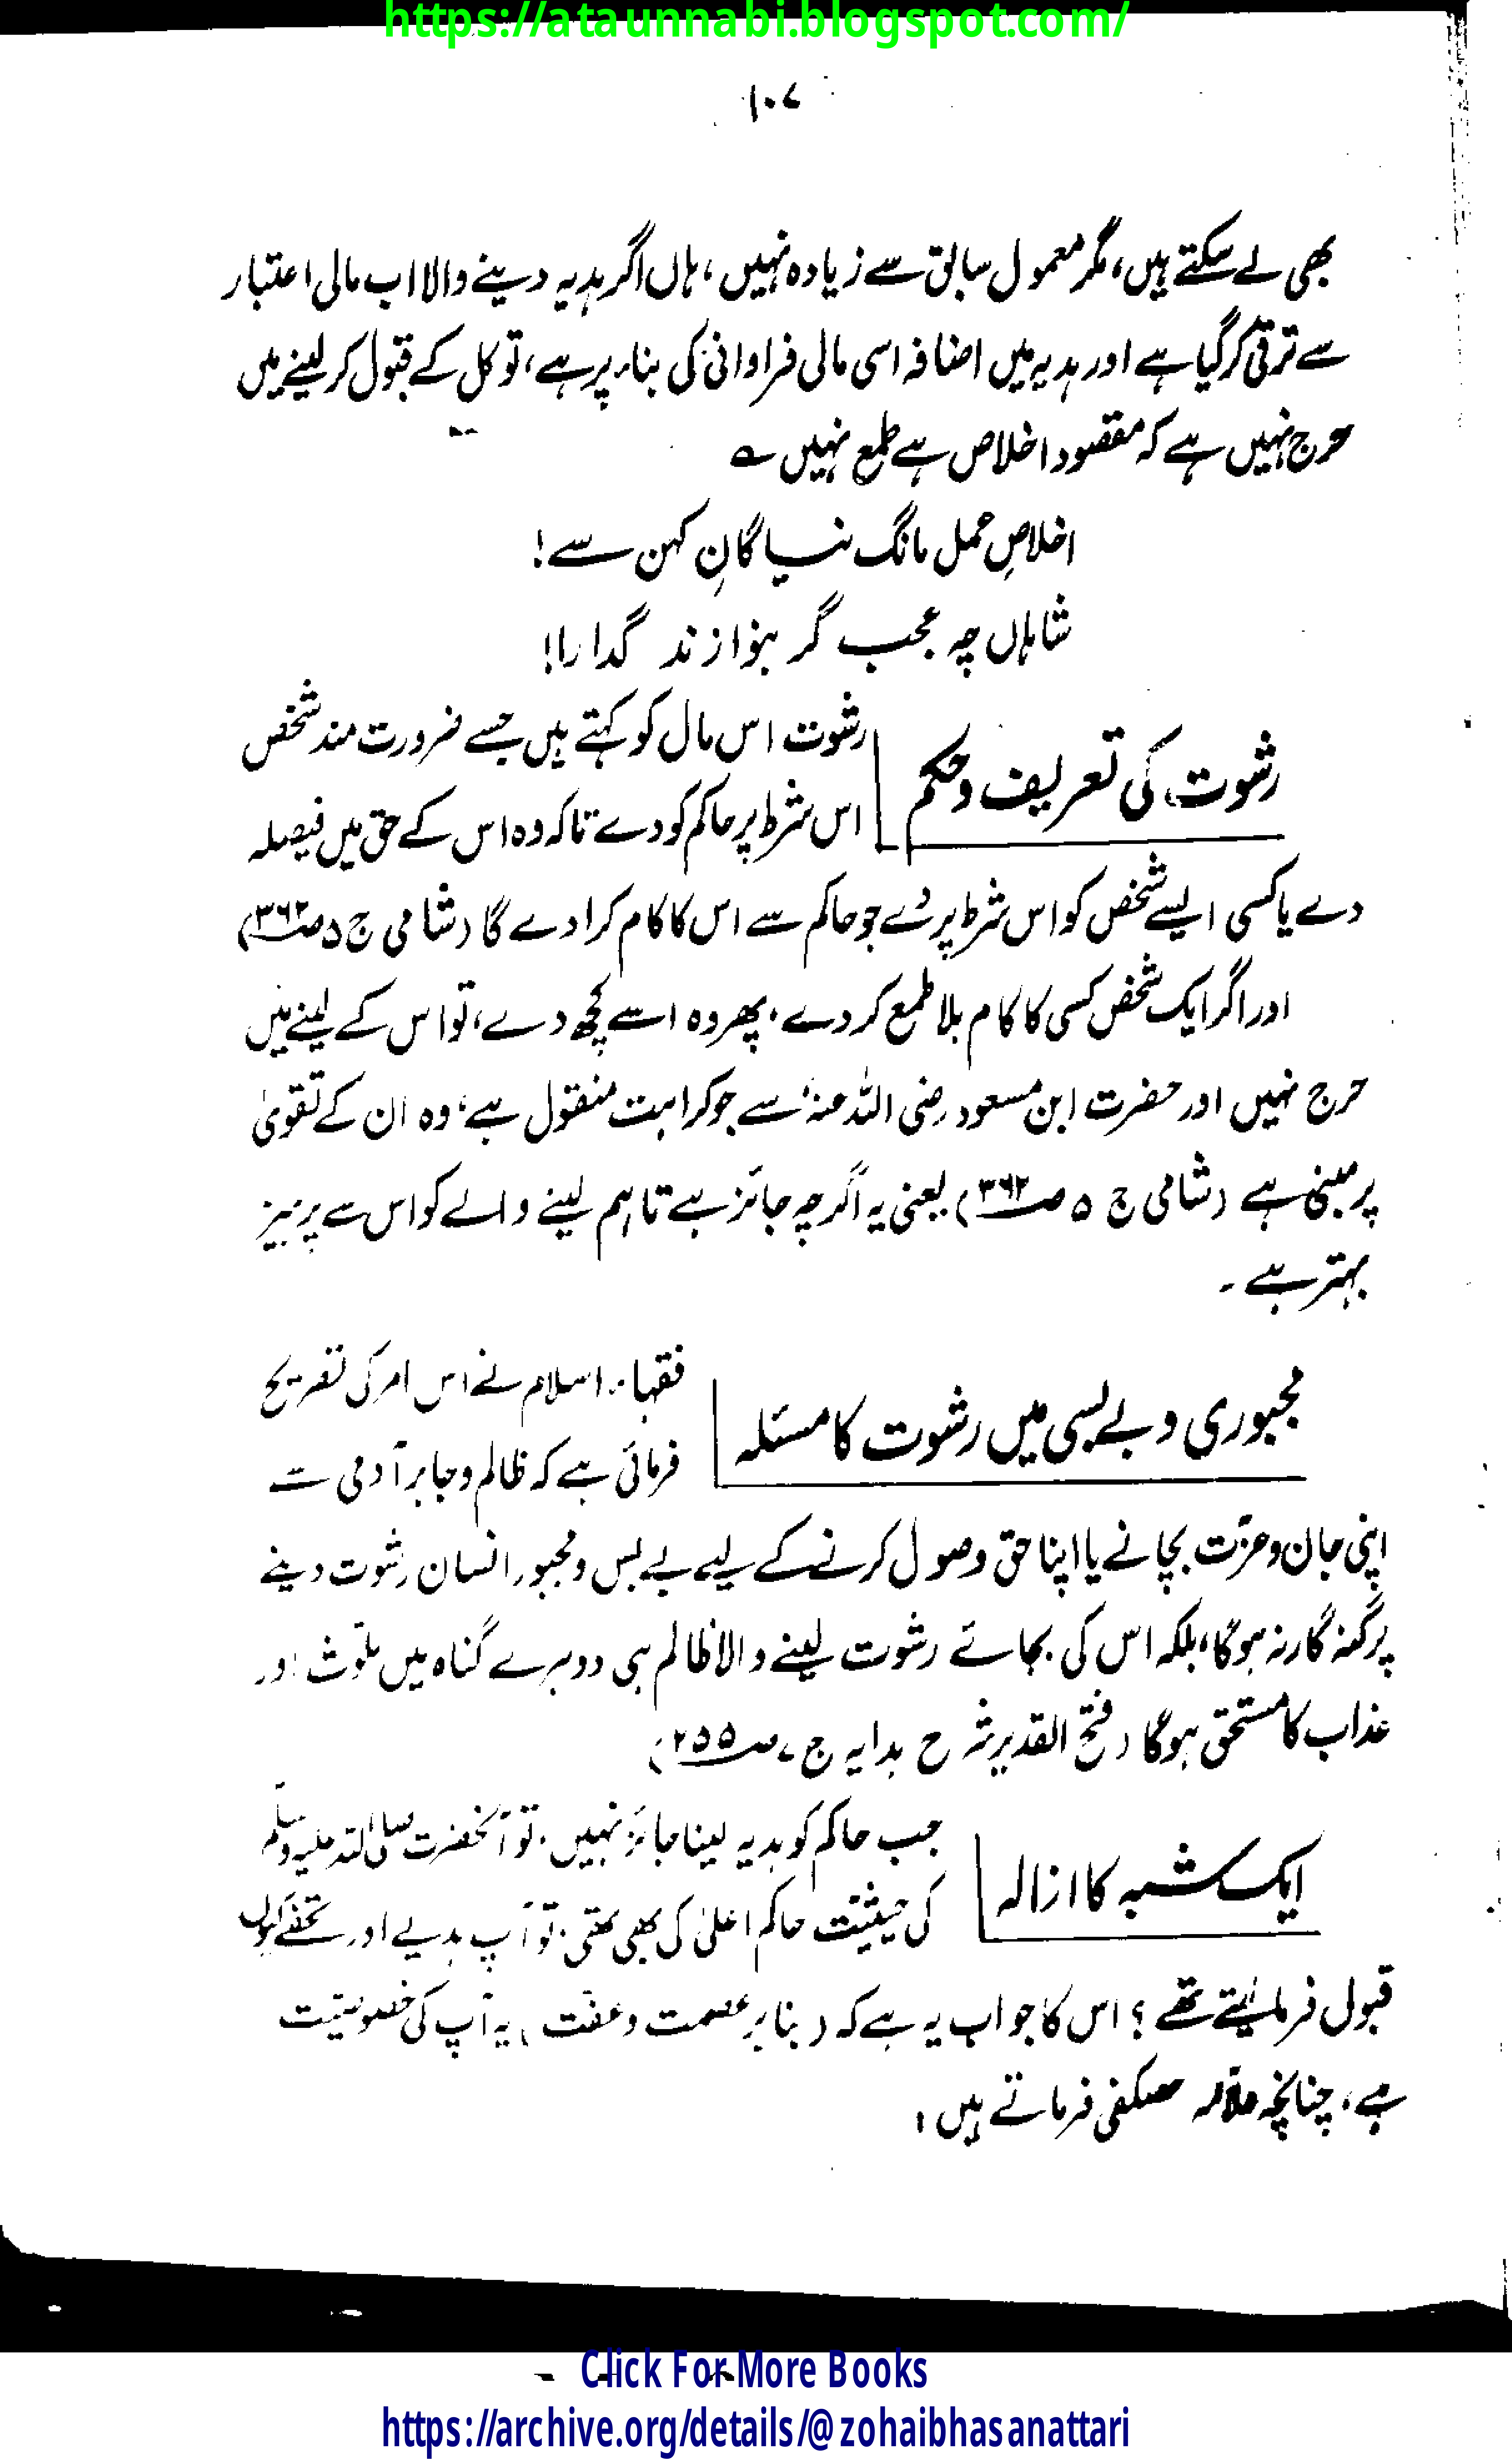 https://ataunnabi.blogspot.com/
۱۰۷
بھی لے سکتے ہیں، مگر معمول سابق سے زیادہ نہیں، ہاں اگر ہدیہ دینے والا اب مالی اعتبار
سے ترقی کر گیا ہے اور ہدیہ میں اضافہ اسی مالی فراوانی کی بناء پر ہے، تو کل کے قبول کر لینے میں
حرج نہیں ہے کہ مقصود اخلاص ہے طمع نہیں ؎
اخلاصِ عمل مانگ نیاگانِ کہن سے!
شاہاں چہ عجب گر بنوازند گدا را!
رشوت کی تعریف و حکم
رشوت اس مال کو کہتے ہیں جسے ضرورت مند شخص
اس شرط پر حاکم کو دے تاکہ وہ اس کے حق میں فیصلہ
دے یا کسی ایسے شخص کو اس شرط پر دے جو حاکم سے اس کا کام کرا دے گا (شامی ج ۵ ص ۳۶۲)
اور اگر ایک شخص کسی کا کام بلا طمع کر دے، پھر وہ اسے کچھ دے، تو اس کے لینے میں
حرج نہیں اور حضرت ابن مسعود رضی اللہ عنہ سے جو کراہت منقول ہے، وہ ان کے تقویٰ
پر مبنی ہے (شامی ج ۵ ص ۳۶۲) یعنی یہ اگرچہ جائز ہے تاہم لینے والے کو اس سے پرہیز
بہتر ہے۔
مجبوری و بے بسی میں رشوت کا مسئلہ
فقہاء اسلام نے اس امر کی تصریح
فرمائی ہے کہ ظالم و جابر آدمی سے
اپنی جان و عزّت بچانے یا اپنا حق وصول کرنے کے لیے بے بس و مجبور انسان رشوت دینے
پر گنہ گار نہ ہوگا، بلکہ اس کی بجائے رشوت لینے والا ظالم ہی دوہرے گناہ میں ملوّث اور
عذاب کا مستحق ہوگا (فتح القدیر شرح ہدایہ ج ۷ ص ۲۵۵)
ایک شبہ کا ازالہ
جب حاکم کو ہدیہ لینا جائز نہیں، تو آنحضرت صلی اللہ علیہ وسلم
کی حیثیّت حاکم اعلیٰ کی بھی تھی، تو آپ ہدیے اور تحفے کیوں
قبول فرما لیتے تھے؟ اس کا جواب یہ ہے کہ (بنا بر عصمت و عفّت) یہ آپ کی خصوصیّت
ہے، چنانچہ علامہ حصکفی فرماتے ہیں:
Click For More Books
https://archive.org/details/@zohaibhasanattari